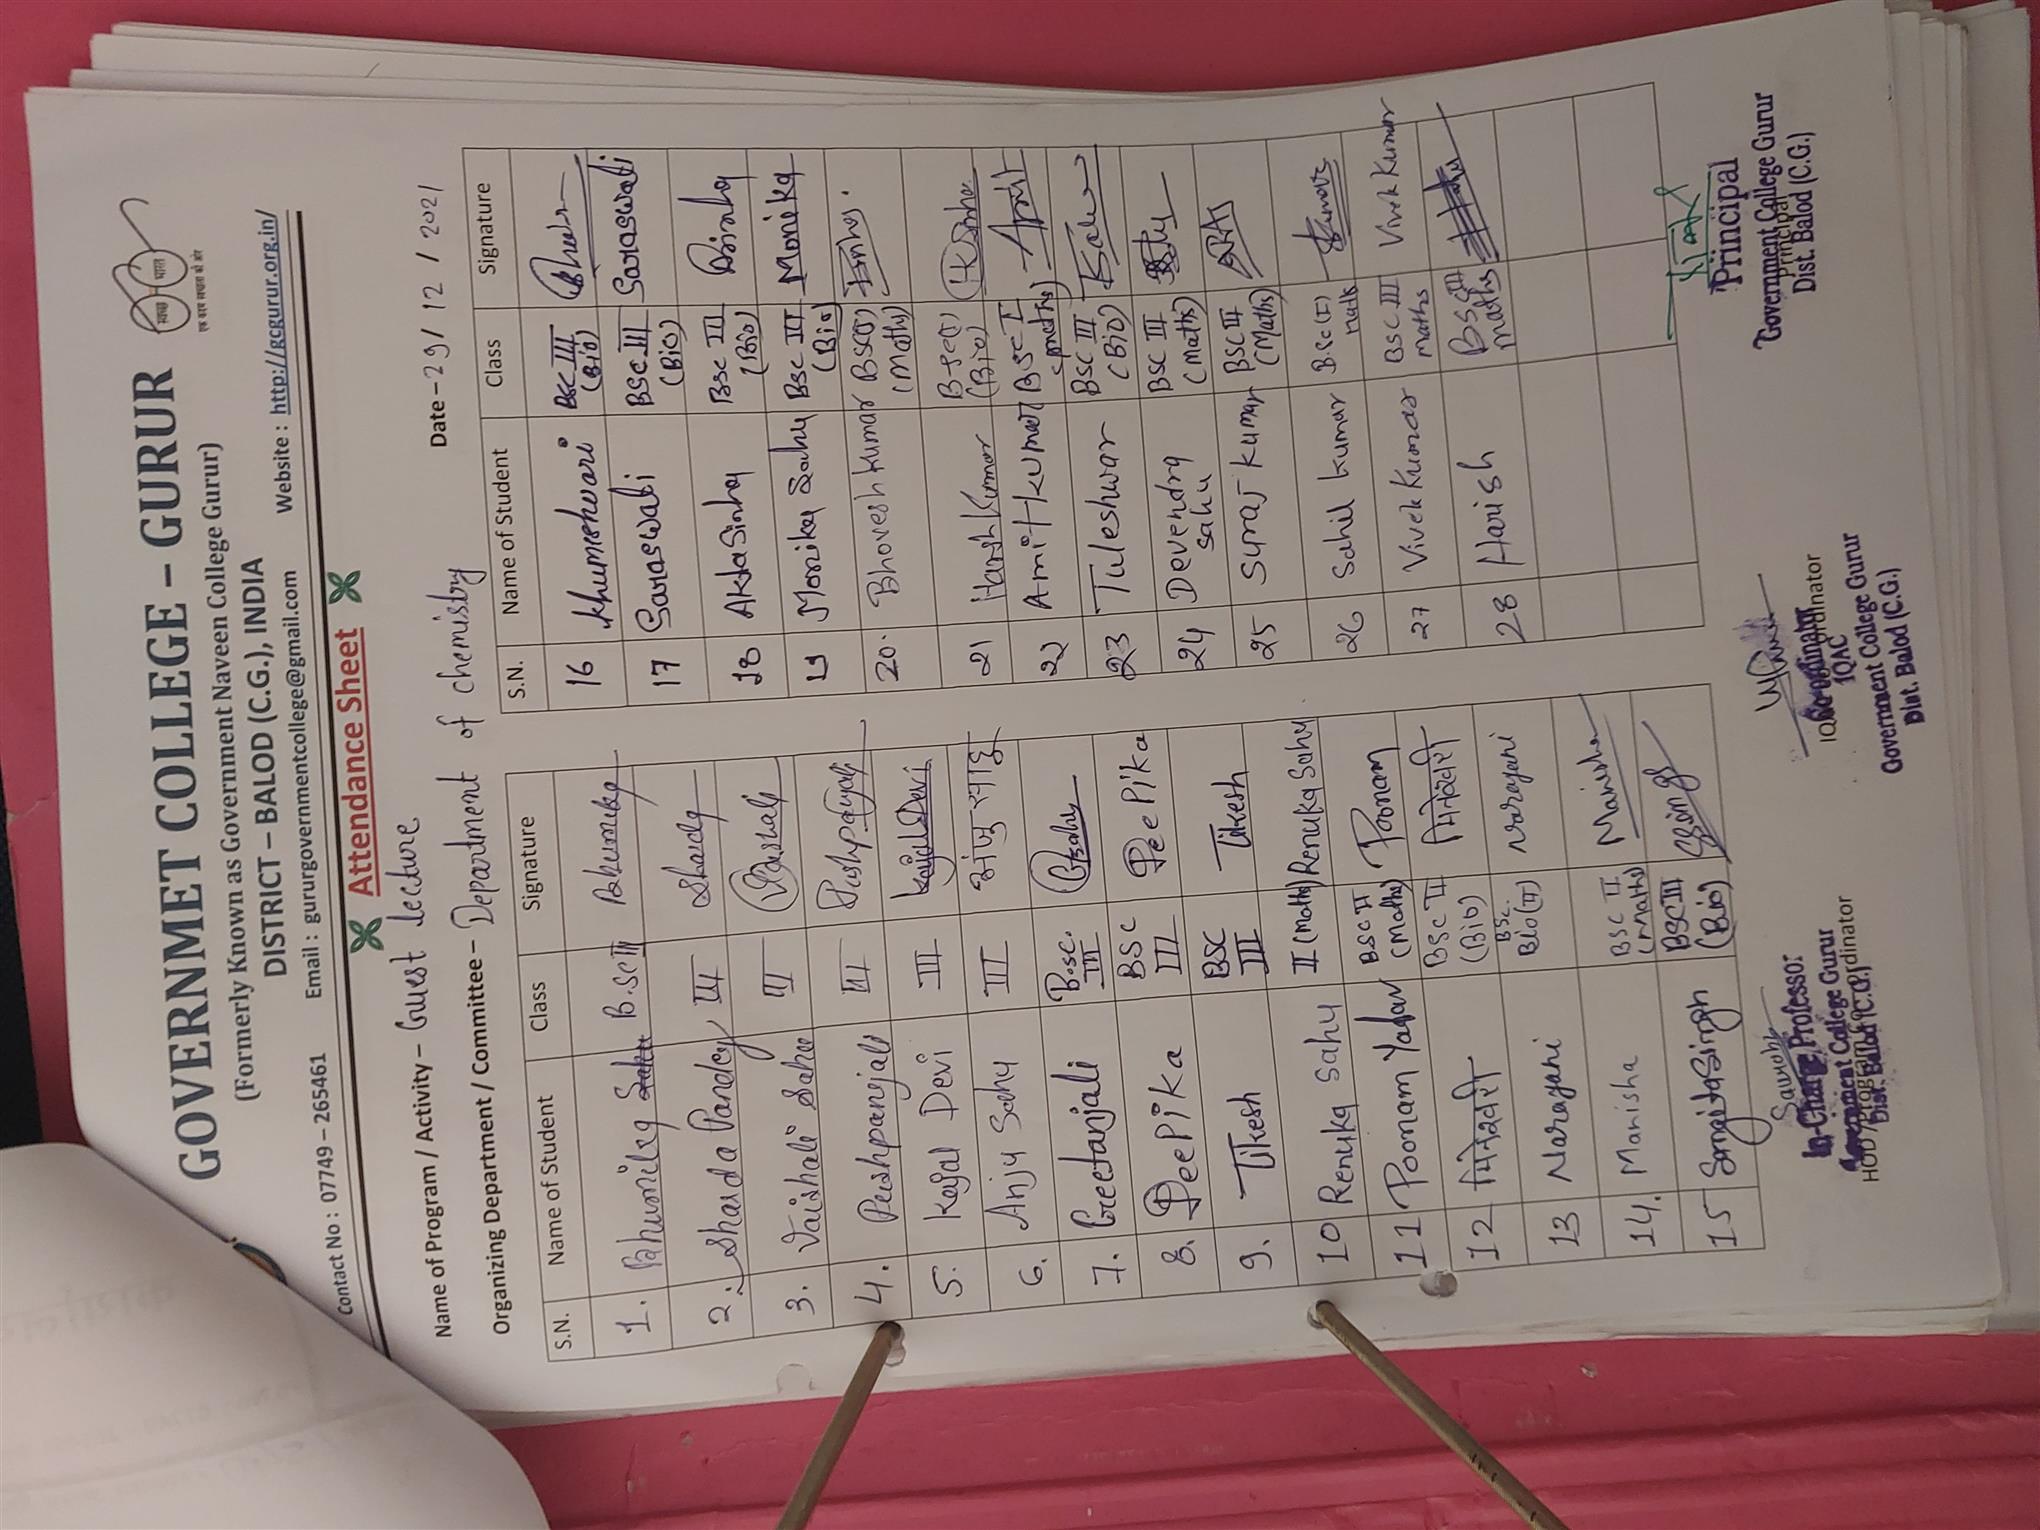 GOVERNMET COLLEGE – GURUR
(Fornerly Known as Government Naveen College Gurur)
DISTRICT – BALOD (C.G.), INDIA
स्वच्छ भारत
एक कदम स्वच्छता की ओर
Contact No : 07749 – 265461 Email : gururgovernmentcollege@gmail.com Website : http://gcgurur.org.in/
Attendance Sheet
Name of Program / Activity – Guest lecture Date – 29 / 12 / 2021
Organizing Department / Committee – Department of chemistry
S.N. Name of Student Class Signature
1. Bhumika B.Sc III Bhumika
2. Sharda Pandey III Sharda
3. Vaishali Sahu III Vaishali
4. Pushpanjali III Pushpanjali
5. Kajal Devi III Kajal Devi
6. Anju Sahu III अंजु साहू
7. Geetanjali B.sc. III
8. Deepika BSC III Deepika
9. Tikesh BSC III Tikesh
10 Renuka Sahu II (maths) Renuka Sahu
11 Poonam Yadav BSC II (maths) Poonam
12 BSC II (Bio)
13 Narayani BSC. Bio (II) Narayani
14. Manisha BSC II (Maths) Manisha
15 Smaita Singh BSC III (Bio) Singh
S.N. Name of Student Class Signature
16 Khumeshwari BSC III (Bio)
17 Saraswati BSC III (Bio) Saraswati
18 Akta Sinha BSC III (Bio) Sinha
19 Monika Sahu BSC III (Bio) Monika
20. Bhovesh Kumar BSC(I) (Maths)
21 Harsh Kumar B-Sc(I) (Bio)
22 Amit Kumar BSC I (maths) Amit
23 Tuleshwar BSC III (Bio) Sahu
24 Devendra Sahu BSC III (Maths)
25 Suraj Kumar BSC III (Maths)
26 Sahil Kumar B.Sc (I) math Kumar
27 Vivek Kumar BSC III maths Vivek Kumar
28 Harish BSC III maths
Saurabh
In-Charge Professor
Government College Gurur
Dist. Balod (C.G.)
HOD / Program Coordinator
Co-ordinator
IQAC Coordinator
IQAC
Government College Gurur
Dist. Balod (C.G.)
Principal
Principal
Government College Gurur
Dist. Balod (C.G.)